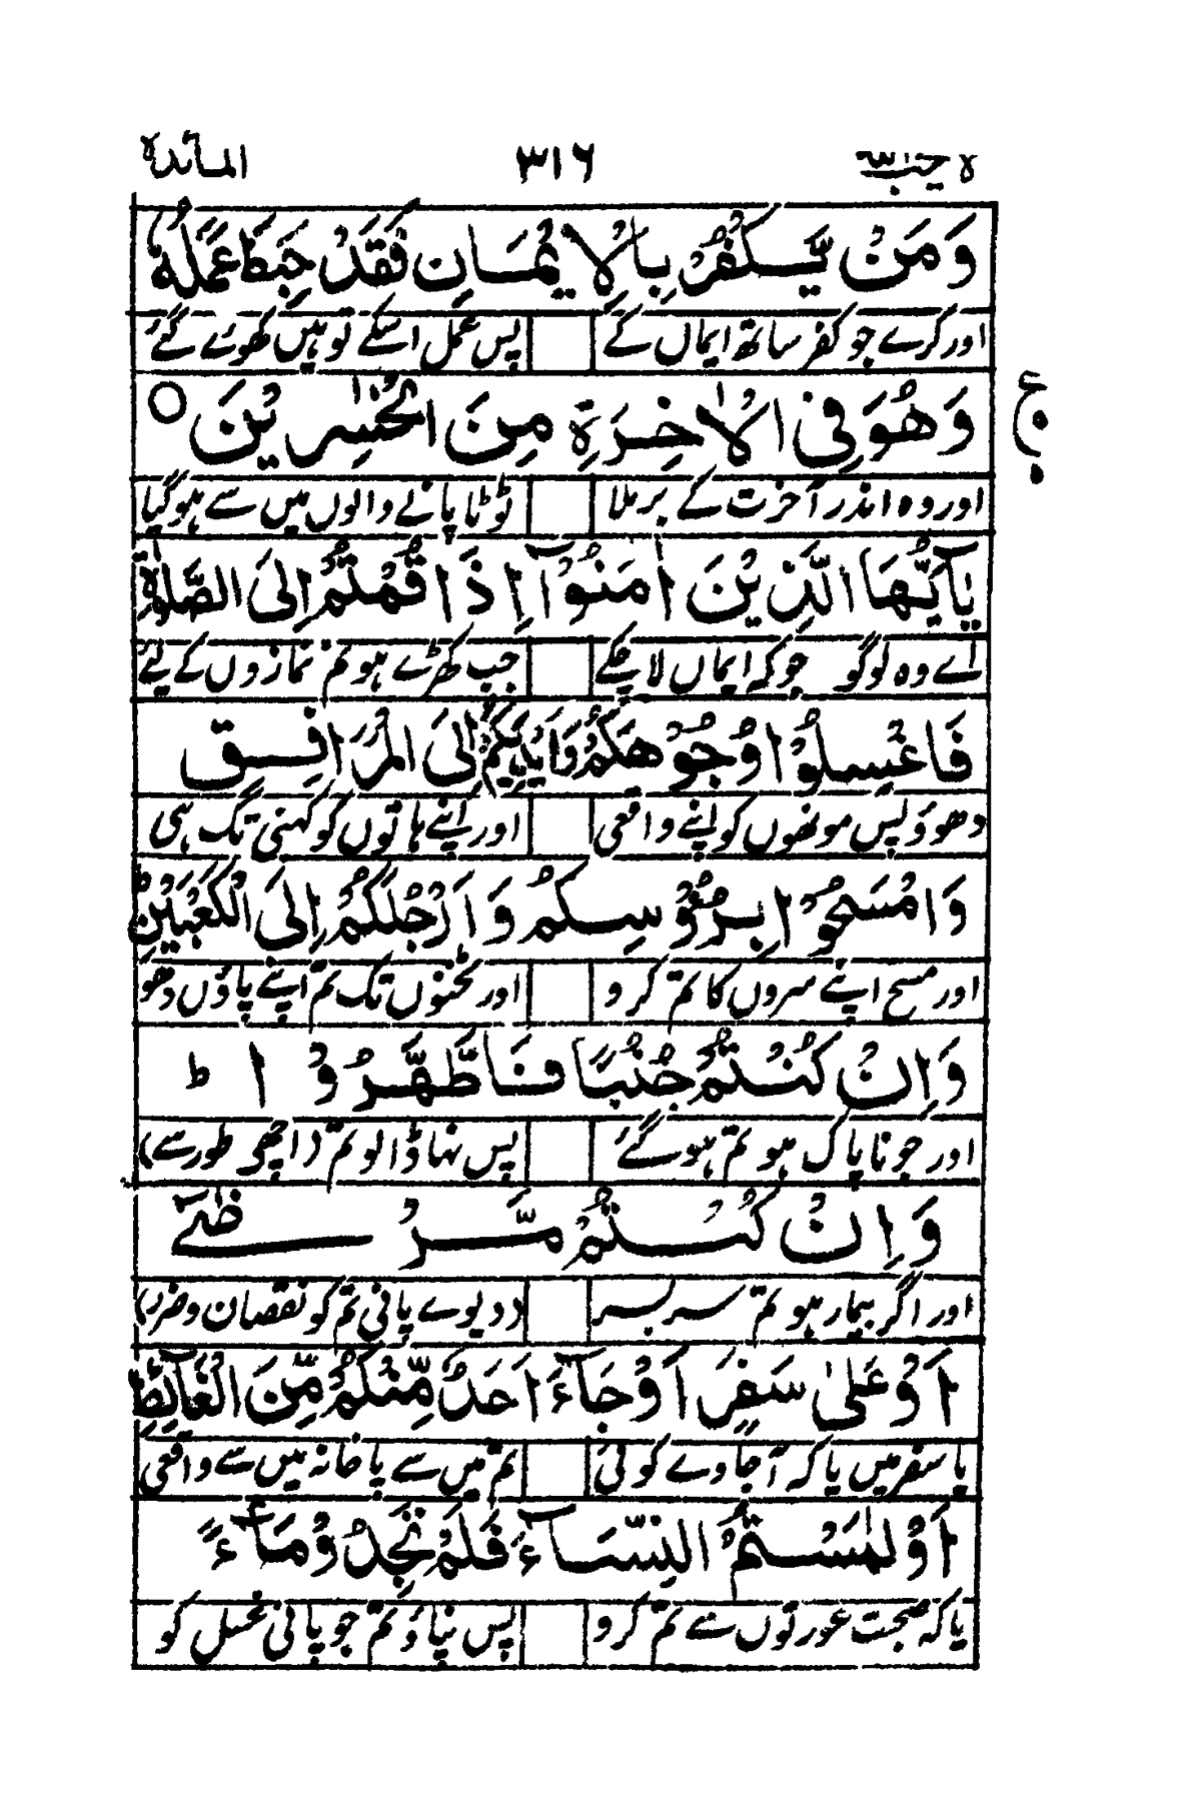 لا یحب اللہ ۳۱۶ المائدۃ
وَمَنْ يَّكْفُرْ بِالْاِيْمَانِ فَقَدْ حَبِطَ عَمَلُهٗ
اور کرے جو کفر ساتھ ایماں کے پس عمل اسکے تو ہیں کھوئے گئے
وَهُوَ فِي الْاٰخِرَةِ مِنَ الْخٰسِرِيْنَ ○
ع
اور وہ اندر آخرت کے برملا ٹوٹا پانے والوں میں سے ہوگیا
يٰۤاَيُّهَا الَّذِيْنَ اٰمَنُوْۤا اِذَا قُمْتُمْ اِلَى الصَّلٰوةِ
اے وہ لوگو جو کہ ایماں لا چکے جب کھڑے ہو تم نمازوں کے لئے
فَاغْسِلُوْا وُجُوْهَكُمْ وَاَيْدِيَكُمْ اِلَى الْمَرَافِقِ
دھوؤ پس مونھوں کو اپنے واقعی اور اپنے ہاتوں کو کہنی تک ہی
وَامْسَحُوْا بِرُءُوْسِكُمْ وَاَرْجُلَكُمْ اِلَى الْكَعْبَيْنِ
اور مسح اپنے سروں کا تم کرو اور ٹخنوں تک تم اپنے پاؤں دھو
وَاِنْ كُنْتُمْ جُنُبًا فَاطَّهَّرُوْا ؕ
اور جو ناپاک ہو تم ہو گئے پس نہا ڈالو تم (اچھی طور سے)
وَاِنْ كُنْتُمْ مَّرْضٰۤى
اور اگر بیمار ہو تم سر بسر (دیوے پانی تم کو نقصان و ضرر)
اَوْ عَلٰى سَفَرٍ اَوْ جَآءَ اَحَدٌ مِّنْكُمْ مِّنَ الْغَآئِطِ
یا سفر میں یا کہ آجاوے کوئی تم میں سے پاخانہ میں سے واقعی
اَوْ لٰمَسْتُمُ النِّسَآءَ فَلَمْ تَجِدُوْا مَآءً
یا کہ صحبت عورتوں سے تم کرو پس نپاؤ تم جو پانی غسل کو